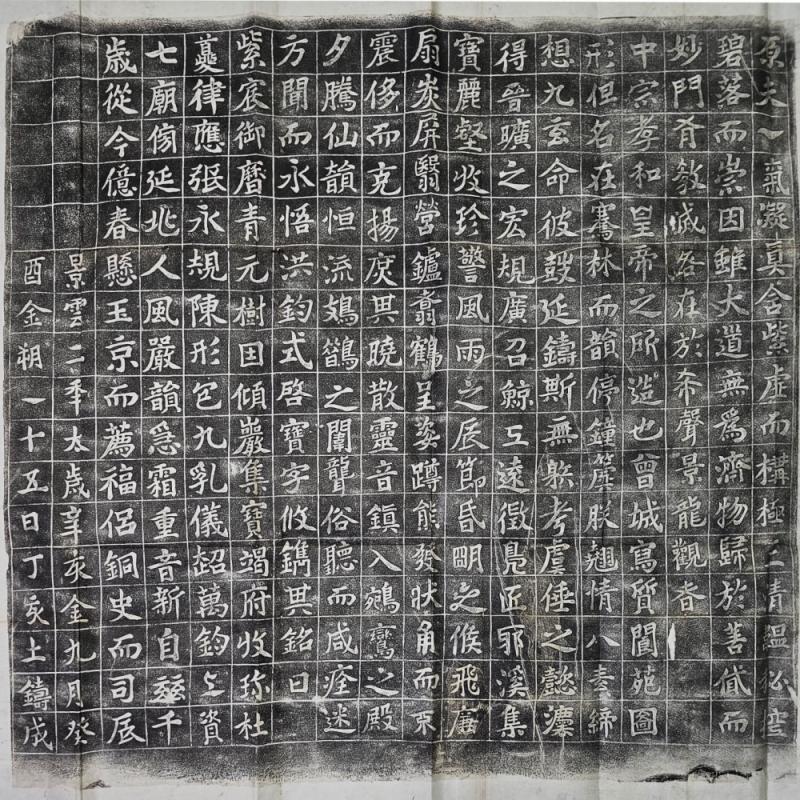 原夫一氣凝真含紫虛而構極三清韞秘控
碧落而崇因雖大道無爲濟物歸於善貸而
妙門有教滅咎在於希聲景龍觀者
中宗孝和皇帝之所造也曾城寫質閬苑圖
形但名在騫林而韻停鐘簴朕翹情八素締
想九玄命彼鼓延鑄斯無䠶考虞倕之懿灋
得晉曠之宏規廣召鯨工遠徵鳧匠邪溪集
寶麗壑收珍警風雨之辰節昏朙之候飛廉
扇炭屏翳營鑪翥鶴呈姿蹲熊發狀角而不
震侈而克揚庶其曉散靈音鎮入鵷鸞之殿
夕騰仙韻恒流鳷鵲之闈聾俗聽而咸痊迷
方聞而永悟洪鈞式啓寶字攸鐫其銘曰
紫宸御曆青元樹因傾巖集寶竭府收珍杜
夔律應張永規陳形包九乳儀超萬鈞上資
七廟傍延兆人風嚴韻急霜重音新自茲千
歲從今億春懸玉京而薦福侶銅史而司辰
景雲二年太歲辛亥金九月癸
酉金朔一十五日丁亥土鑄成